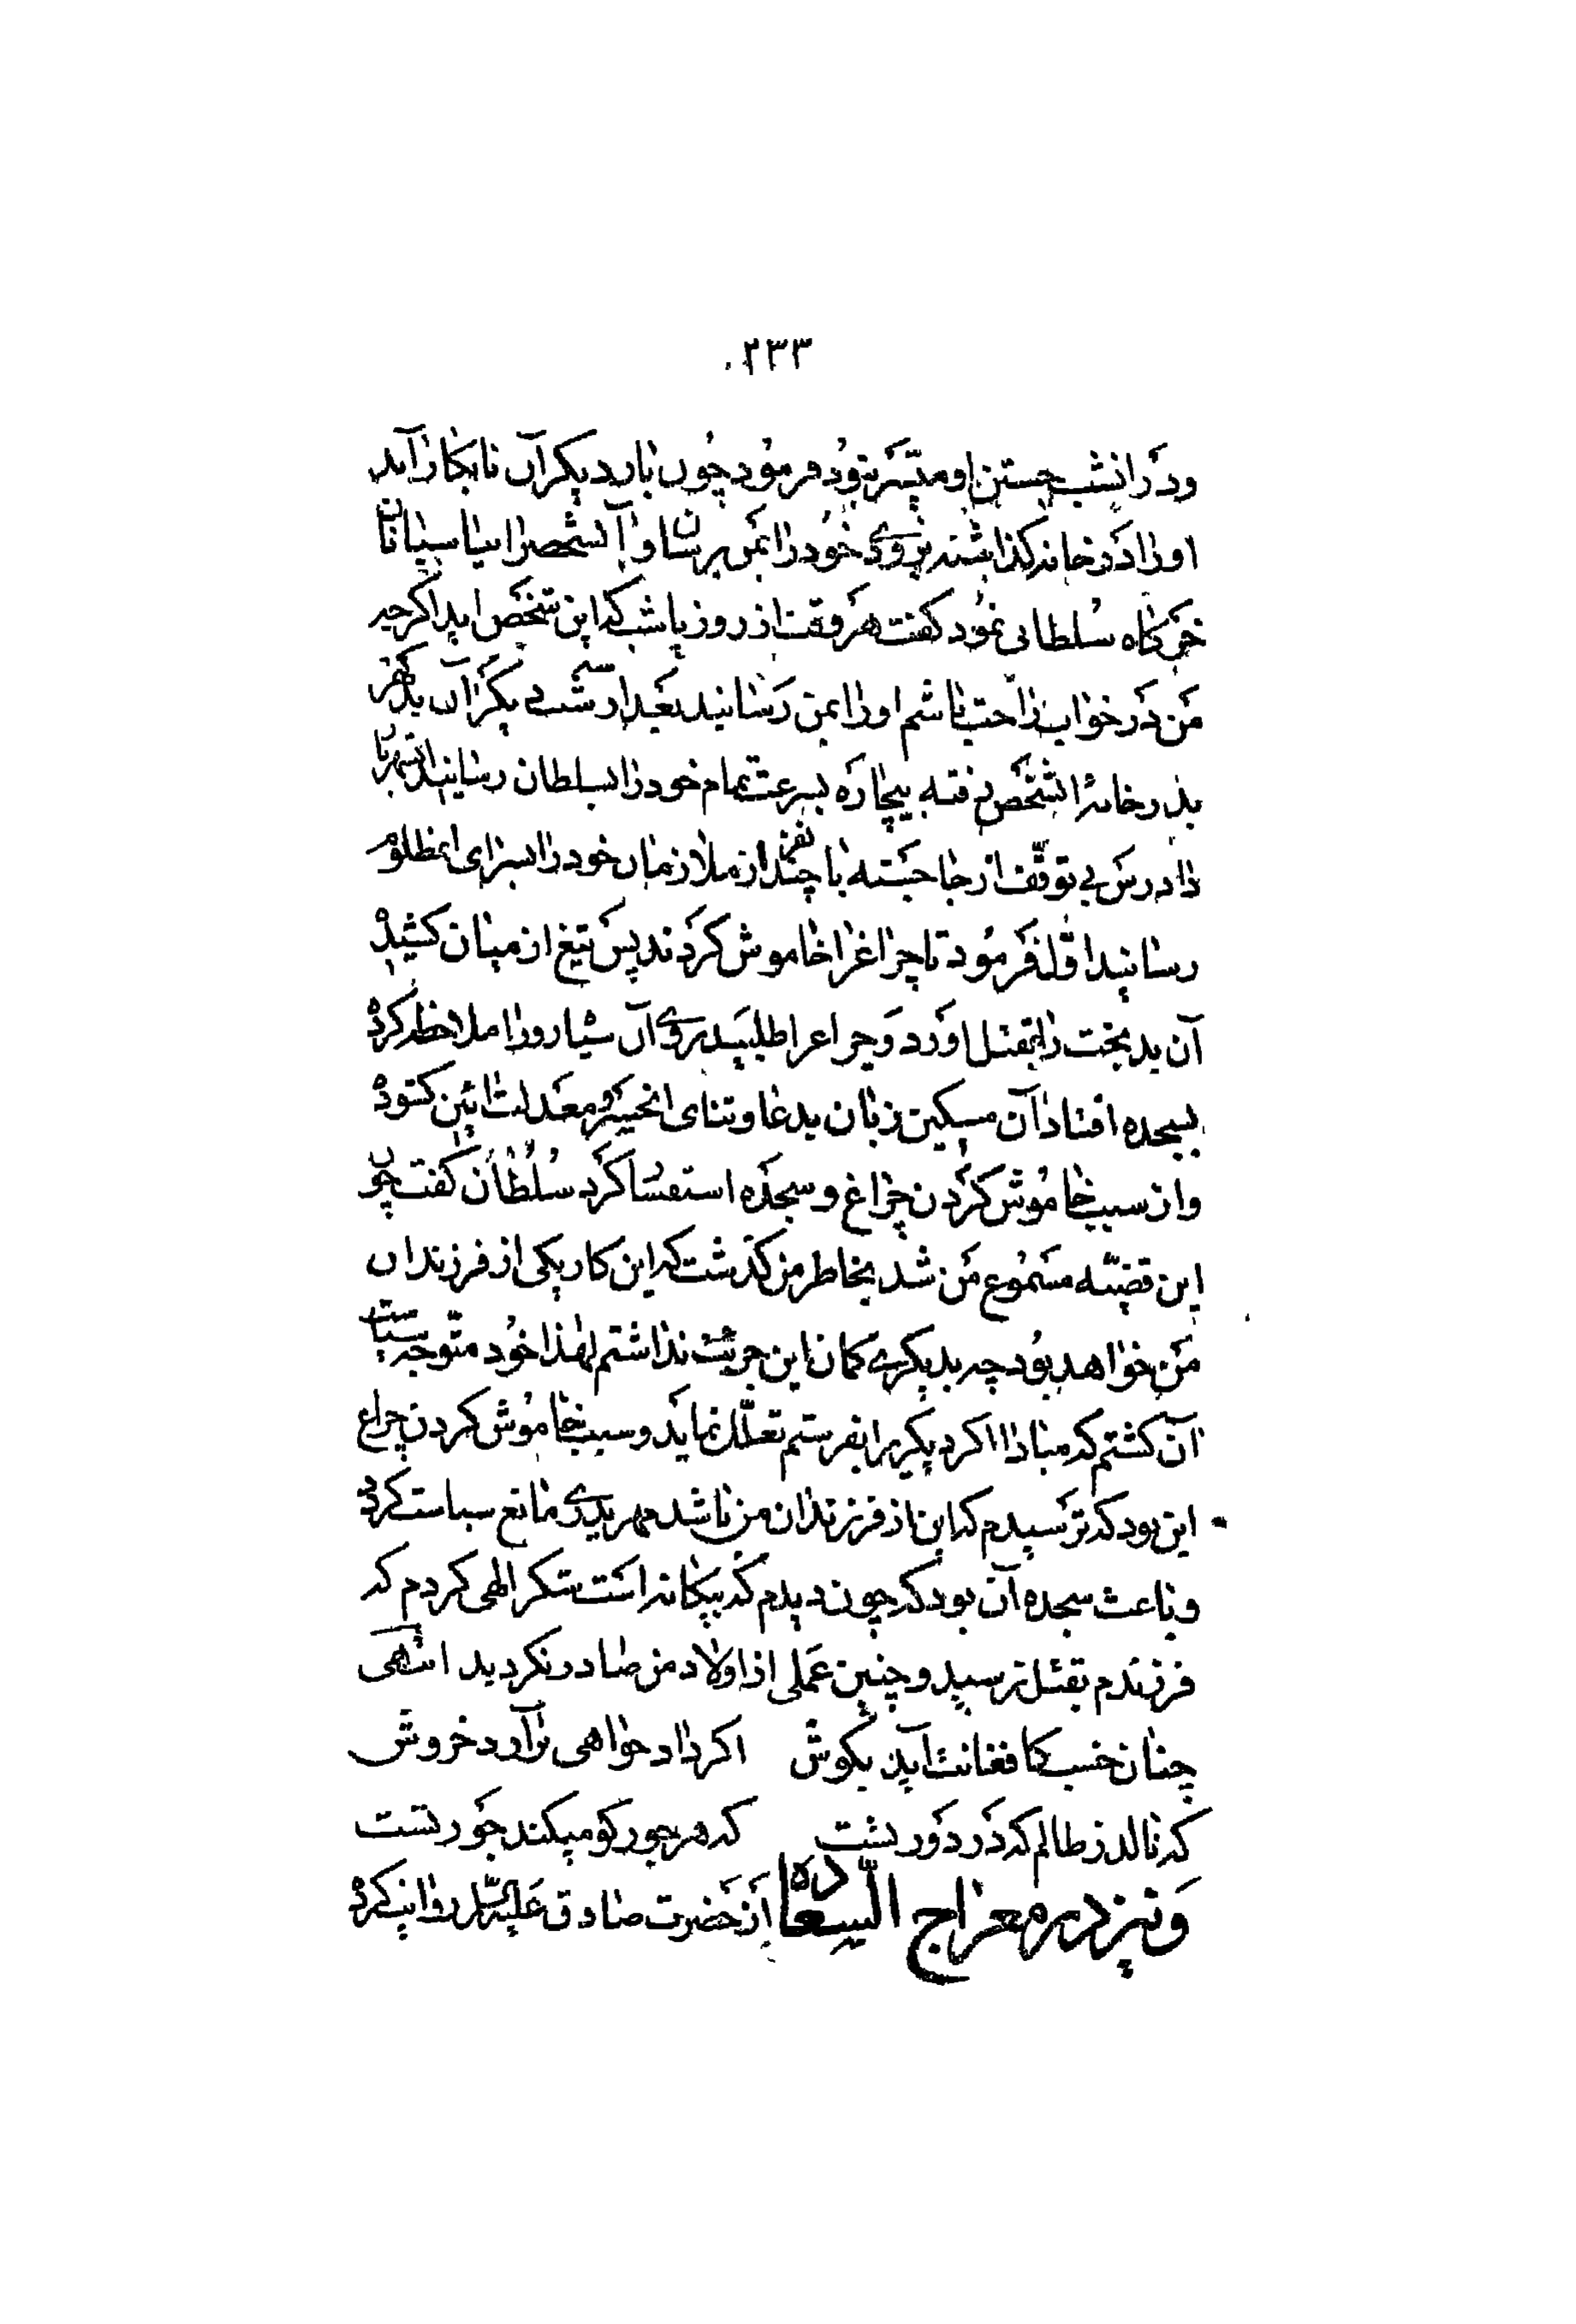 ۲۳۳
ودر انشب جستن او میسّر نبود فرمود چون بار دیکر آن نابکار آید
او را در خانه کذاشته بزودی خود را بمن برسان و آنشخص را بپاسبانان
خرکاه سلطانی نمود کفت هر وقت از روز یا شب که این شخص اید اکرچه
من در خواب راحت باشم او را بمن رسانید بعد از سه شب دیکر آن بدکهر
بدر خانه انشخص رفته بیچاره بسرعت تمام خود را بسلطان رسانید انشهریار
دادرس بی توقّف از جا جسته با چند نفر از ملازمان خود را بسرای انمظلوم
رسانید اوّل فرمود تا چراغ را خاموش کردند پس تیغ از میان کشیده
آن بدبخت را بقتل اورد و چراغ را طلبیده روی آن سیاه رو را ملاحظه کرده
بسجده افتاد آن مسکین زبان بدعا و ثنای انخسرو معدلت ائین کشوده
و از سبب خاموش کردن چراغ و سجده استفسار کرد سلطان کفت چون
این قضیّه مسموع من شد بخاطر من کذشت که این کار یکی از فرزندان
من خواهد بود چه بدیکری کمان این جرئت نداشتم لهذا خود متوجّه سیاست
آن کشتم که مبادا اکر دیکریرا بفرستم تعلّل نماید و سبب خاموش کردن چراغ
این بود که ترسیدم که این از فرزندان من باشد مهر پدری مانع سیاست کردد
و باعث سجده آن بود که چون دیدم که بیکانه است شکر الهی کردم که
فرزندم بقتل نرسید و چنین عملی از اولاد من صادر نکردید انتهی
چنان خسب کافغانت آید بکوش    اکر دادخواهی برآرد خروش
که نالد ز ظالم که در دور تست    که هر جور کو میکند جور تست
و نیز در معراج السّعاده از حضرت صادق علیه السّلام روایت کرده